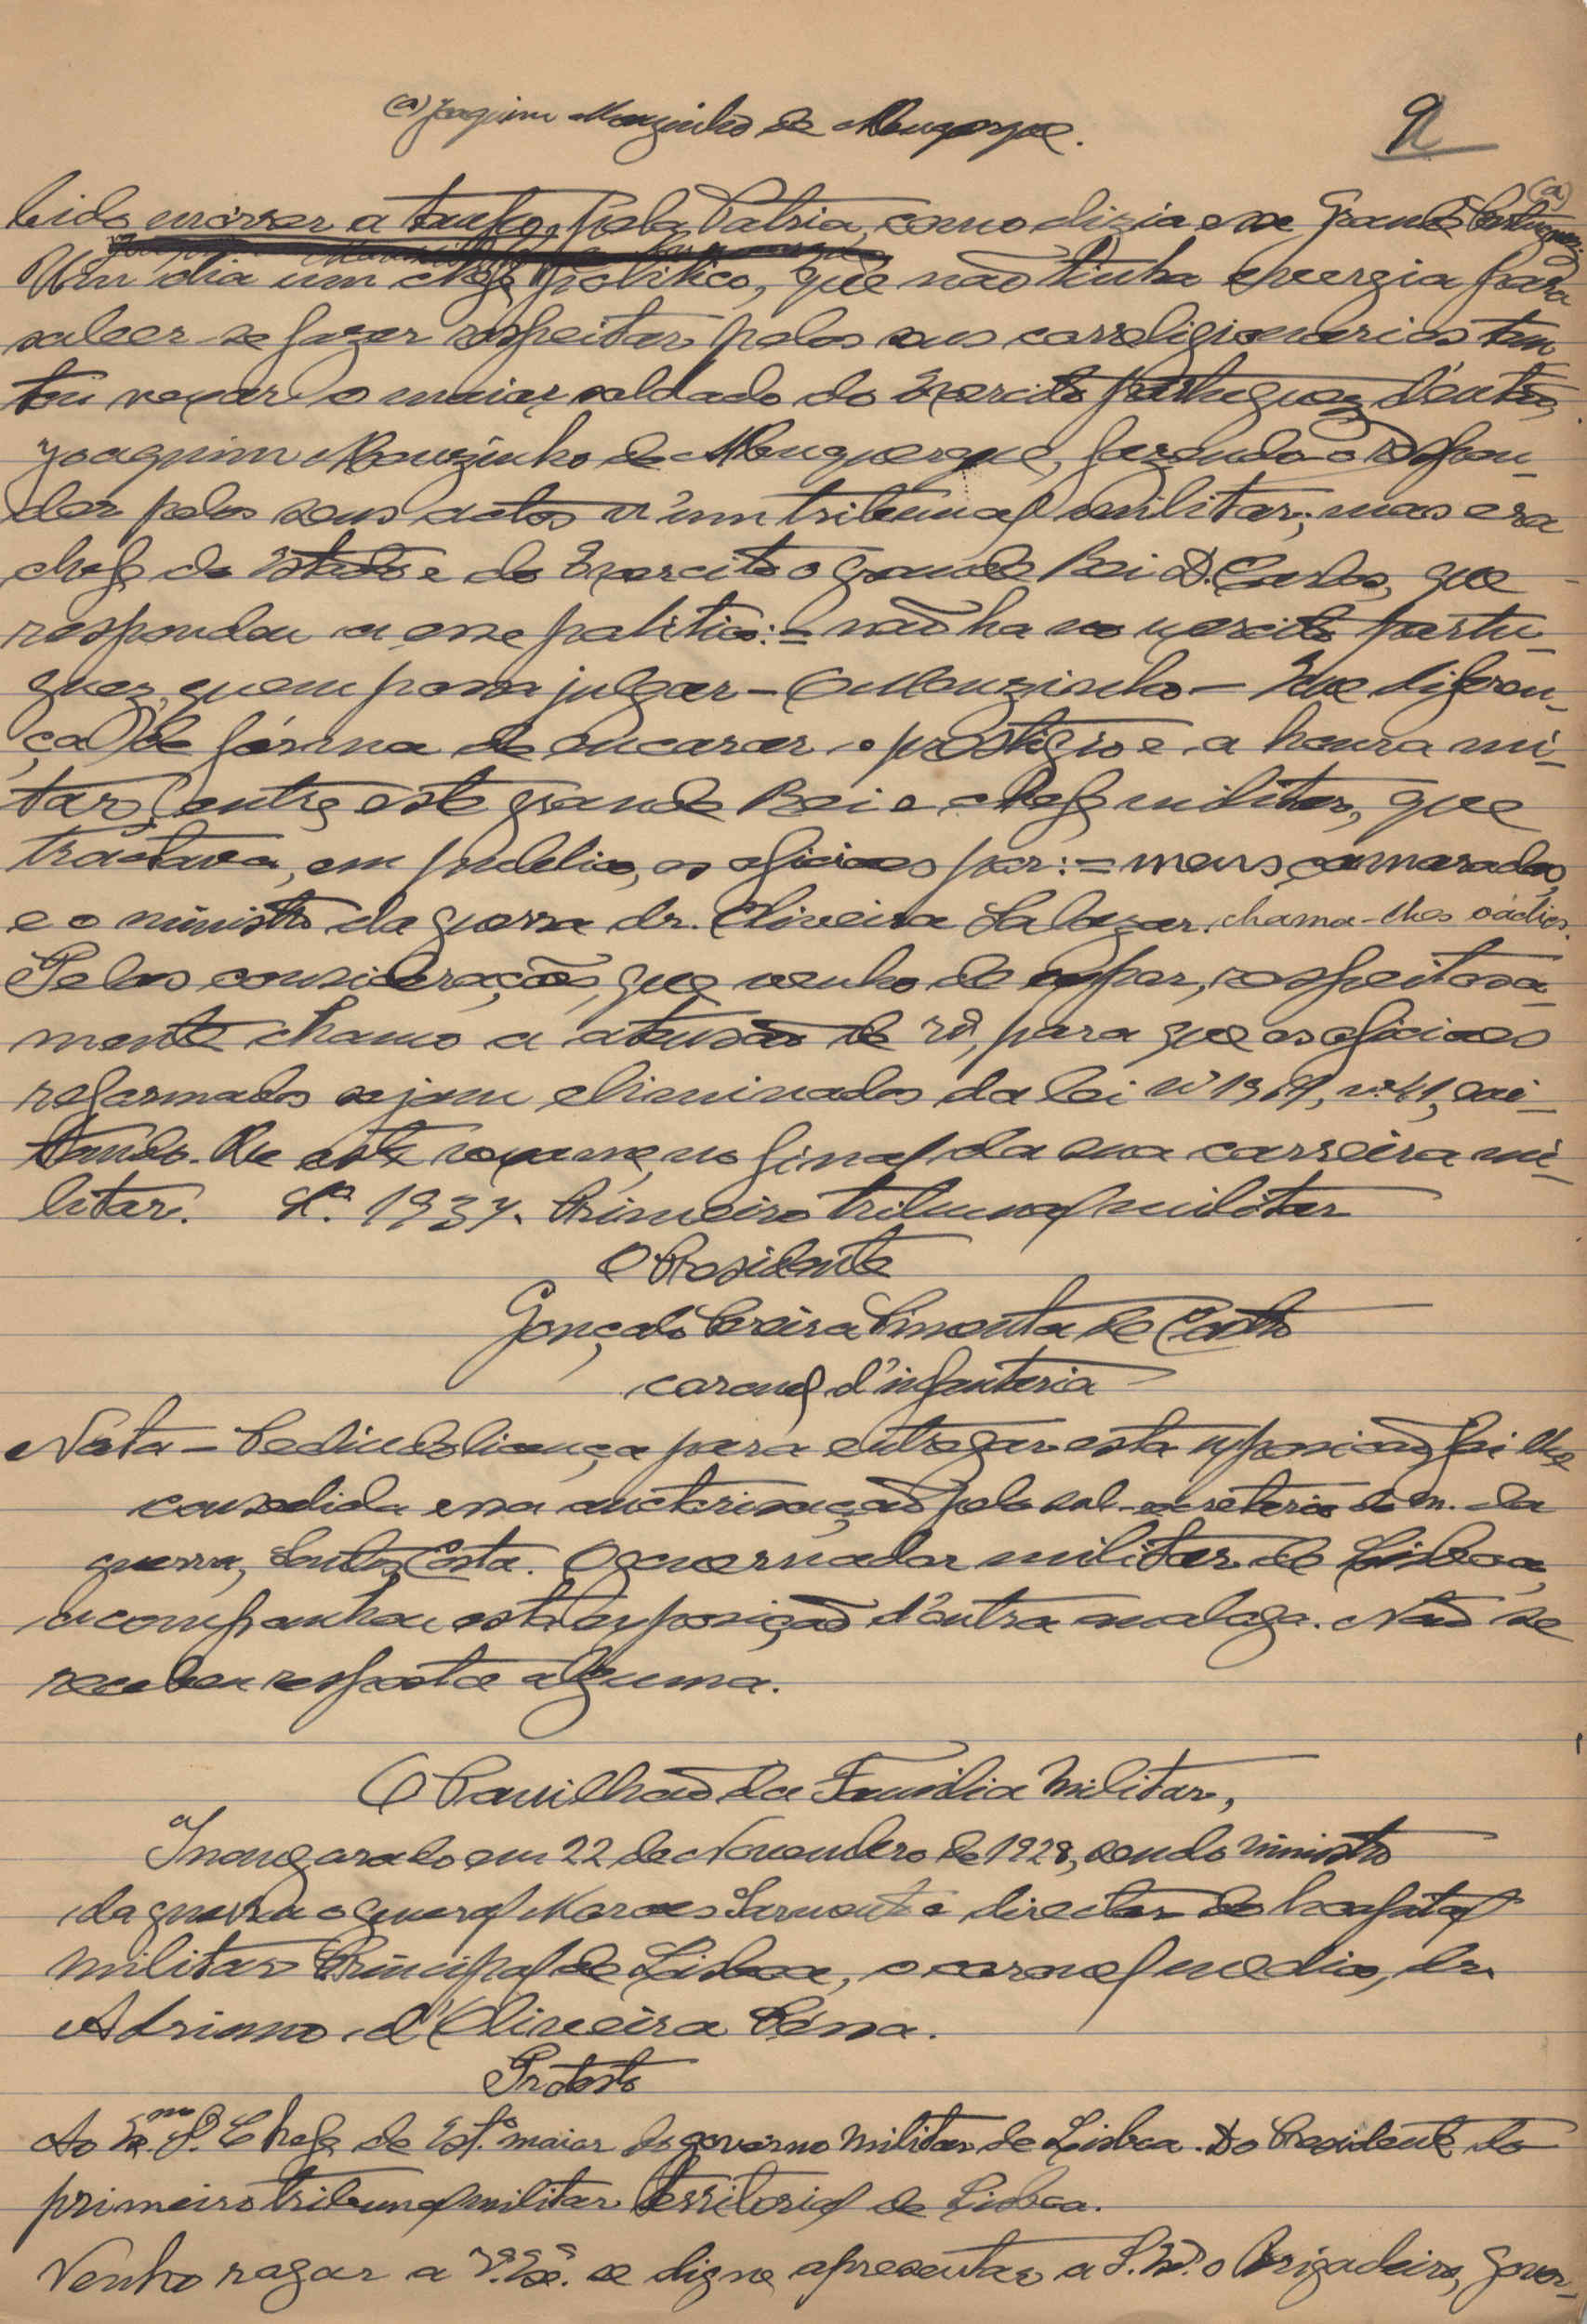 (a) Joaquim Mouzinho de Albuquerque.
9
bido morrer a tempo, pela Patria, como dizia esse grande Portuguez (a)
Um dia um chefe politico, que não tinha energia para
saber se fazer respeitar pelos seus correligionarios ten-
tou vexar o maior soldado do Exercito portuguez d'então,
Joaquim Mouzinho de Albuquerque, fazendo-o respon-
der pelos seus actos n'um tribunal militar; mas era
chefe do Estado e do Exercito o grande Rei D. Carlos, que
respondeu a esse politico: = não ha no exercito portu-
guez, quem possa julgar - O Mouzinho - Que diferen-
ça de fórma de encarar o prestigio e a honra mi-
tar, entre este grande Rei e chefe militar, que
tractava, em publico, os oficiaes por: = meus camaradas,
e o ministro da guerra dr. Oliveira Salazar, chama-lhes
Pelas considerações, que venho de expor, respeitosa-
mente chamo a atensão de para que os oficiaes
reformados sejam eliminados da lei nº 1961, nº 41, evi-
tando-lhe este vexame, no final da sua carreira mi-
litar. Lxª. 1937. Primeiro tribunal militar
O Presidente
Gonçalo Pereira Pimenta de Castro
coronel d'infanteria
Nota - Pedindo licença para entregar esta exposição foi lhe
consedida essa auctorisação pelo sub-secretario do m. da
guerra, Santos Costa. O governador militar de Lisboa,
acompanhou esta exposição d'outra analoga. Não se
recebeu resposta alguma.
O Pavilhão da Familia Militar,
Inaugurado em 22 de Novembro de 1928, sendo ministro
da guerra o general Moraes Sarmento e director do hospital
militar Principal de Lisboa, o coronel medico, dr.
Adriano d'Oliveira Pessa.
Protesto
Ao Exmo. Sr. Chefe de Est.º maior do governo militar de Lisboa. Do Presidente do
primeiro tribunal militar territorial de Lisboa.
Venho rogar a V. Exª. se digne apresentar a S. Exª. o Brigadeiro, gover-